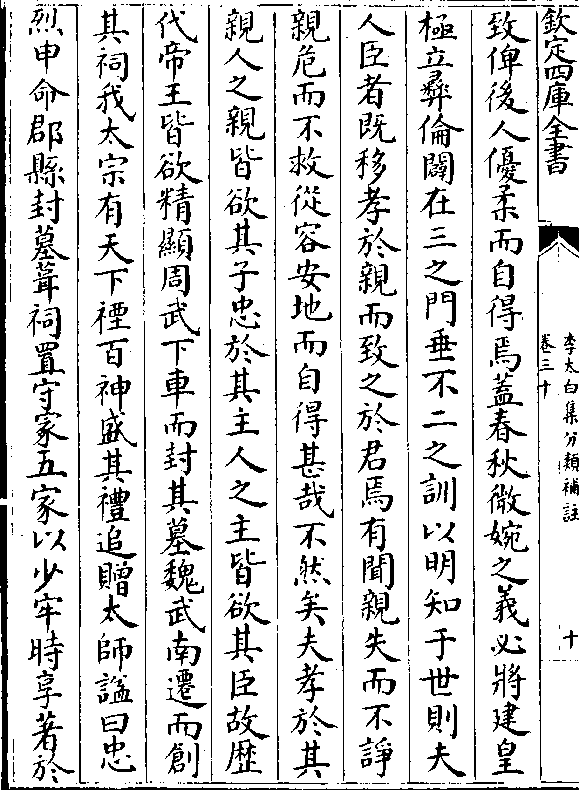 欽定四庫全書
李太白集分類補註
卷三十
十
致俾後人優柔而自得焉蓋春秋微婉之義必將建皇
極立彞倫闢在三之門垂不二之訓以明知于世則夫
人臣者既移孝於親而致之於君焉有聞親失而不諍
親危而不救從容安地而自得甚哉不然矣夫孝於其
親人之親皆欲其子忠於其主人之主皆欲其臣故歴
代帝王皆欲精顯周武下車而封其墓魏武南遷而創
其祠我太宗有天下禋百神盛其禮追贈太師諡曰忠
烈申命郡縣封墓葺祠置守冢五家以少牢時享著於